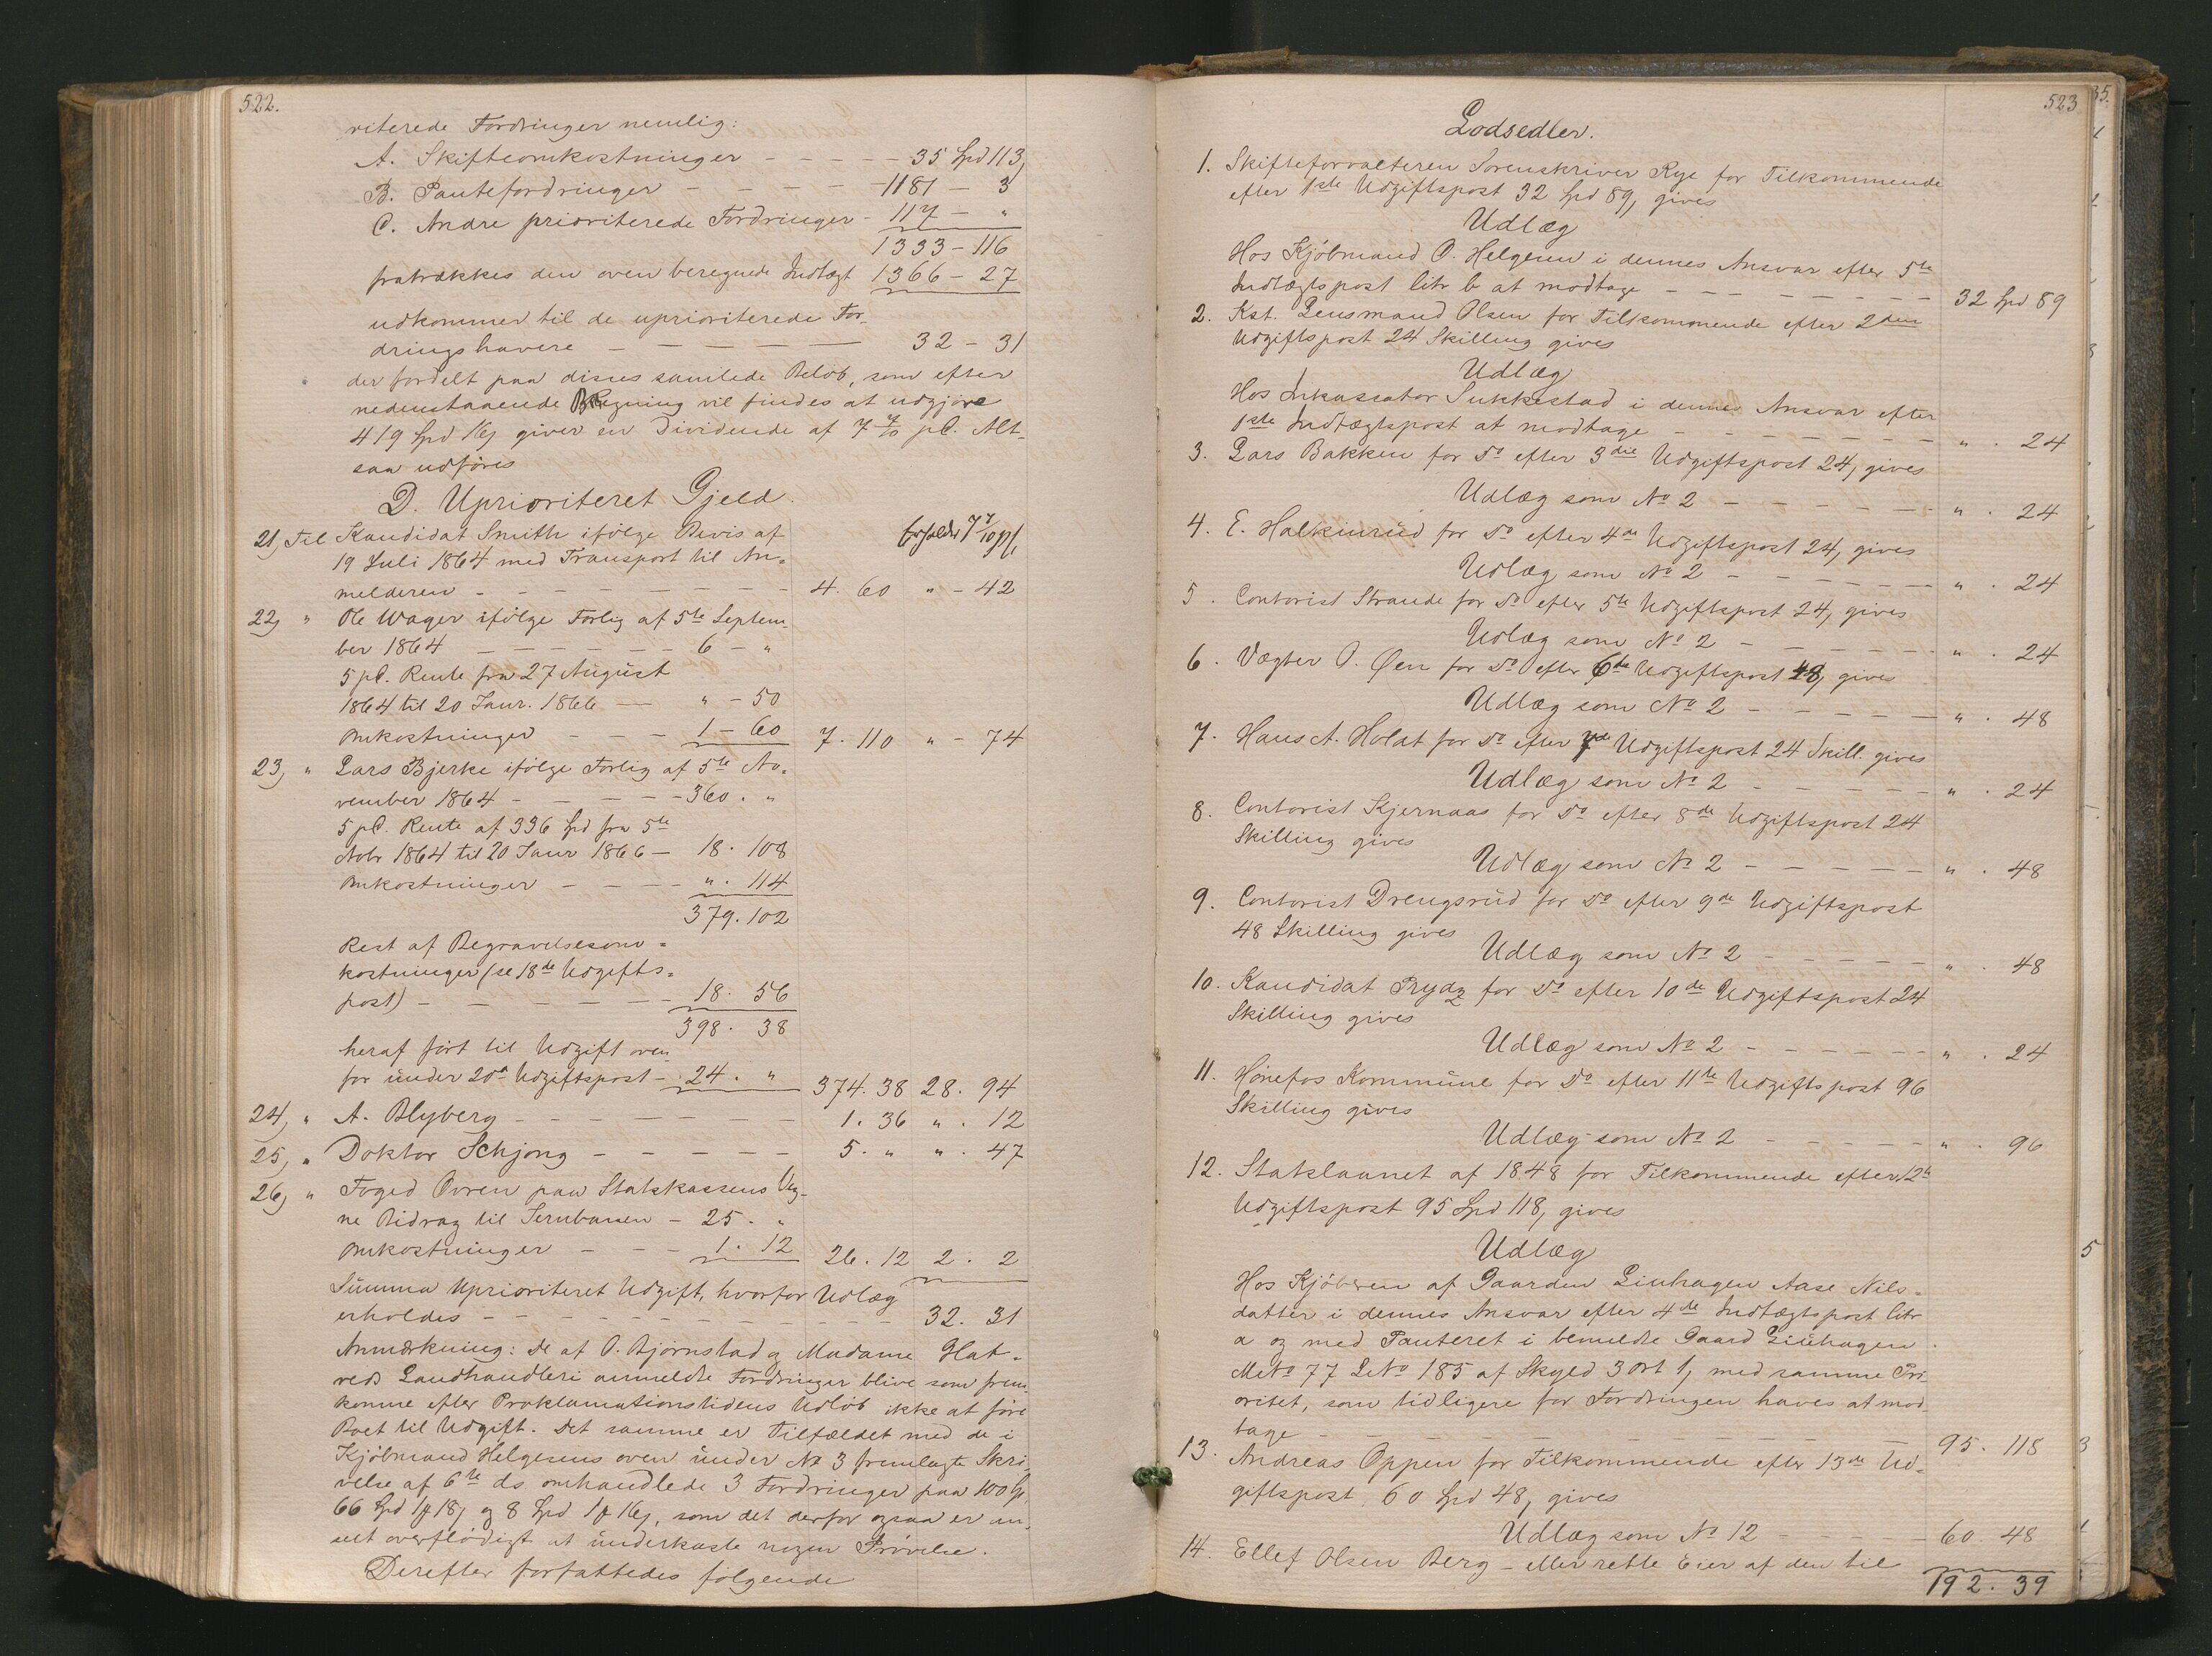 522.
riterede Fordringer nemlig:
A. Skifteomkostninger - - - - - 35 Spd 113,
B. Pantefordringer - - - - - 1181 - 3
C. Andre prioriterede Fordringer - 117 - "
1333 - 116
fratrækkes den oven beregnede Indtægt 1366 - 27
udkommer til de uprioriterede For-
dringshavere - - - - - 32 - 31
der fordelt paa disses samlede Beløb, som efter
nedenstaaende Beregning vil findes at udgjøre
419 Spd 16ß giver en Dividende af 7 7/10 pC. Alt-
saa udføres
D. Uprioriteret Gjeld.
Erholder 7 7/10 pC
21, Til Kandidat Smith ifølge Bevis af
19 Juli 1864 med Transport til An-
melderen - - - - - - - 4. 60 " - 42
22, " Ole Wager ifølge Forlig af 5te Septem-
ber 1864 - - - - - 6 - "
5 pC. Rente fra 27 August
1864 til 20 Janr. 1866 - " - 50
Omkostninger - - - 1 - 60 7. 110 " - 74
23, " Lars Bjerke ifølge Forlig af 5te No-
vember 1864 - - - - - 360. "
5 pC. Rente af 336 Spd fra 5te
Novbr 1864 til 20 Janr 1866 - 18. 108
Omkostninger - - - - ". 114
379. 102
Rest af Begravelsesom-
kostninger (se 18de Udgifts-
post) - - - - - 18. 56
398. 38
heraf ført til Udgift oven
for under 20de Udgiftspost - 24. " 374. 38 28. 94
24, " A. Blyberg - - - - - - 1. 36 ". 12
25, " Doktor Schjong - - - - - 5. " ". 47
26, " Foged Ovren paa Statskassens Veg-
ne Bidrag til Jernbanen - 25. "
Omkostninger - - - 1. 12 26. 12 2. 2
Summa Uprioriteret Udgift, hvorfor Udlæg
erholdes - - - - - - - - 32. 31
Anmærkning: De af O. Bjørnstad og Madame Hat-
veds Landhandleri anmeldte Fordringer blive som frem-
komne efter Proklamationstidens Udløb ikke at føre
Boet til Udgift. Det samme er Tilfældet med de i
Kjøbmand Helgesens oven under No 3 fremlagte Skri-
velse af 6te ds. omhandlede 3 Fordringer paa 100 Sp,
66 Spd 1ƒ 18ß og 8 Spd 1ƒ 16ß, som det derfor ogsaa er an-
seet overflødigt at underkaste nogen Prøvelse.
Derefter forfattedes følgende
523
Lodsedler.
1. Skifteforvalteren Sorenskriver Rye for Tilkommende
efter 1ste Udgiftspost 32 Spd 89, gives
Udlæg
Hos Kjøbmand O. Helgesen i dennes Ansvar efter 5te
Indtægtspost litr b at modtage - - - - - - - 32 Spd 89
2. Kst. Lensmand Olsen for Tilkommende efter 2den
Udgiftspost 24 Skilling gives
Udlæg
Hos Inkassator Sukkestad i dennes Ansvar efter
1ste Indtægtspost at modtage - - - - - - - " . 24
3. Lars Bakken for Do efter 3die Udgiftspost 24, gives
Udlæg som No 2 - - - - - - " . 24
4. E. Halkinrud for Do efter 4de Udgiftspost 24, gives
Udlæg som No 2 - - - - - - " . 24
5. Contorist Strande for Do efter 5te Udgiftspost 24, gives
Udlæg som No 2 - - - - - - " . 24
6. Vægter O. Øen for Do efter 6de Udgiftspost 48, gives
Udlæg som No 2 - - - - - " . 48
7. Hans A. Holat for Do efter 7de Udgiftspost 24 Skill. gives
Udlæg som No 2 - - - - - " . 24
8. Contorist Kjernaas for Do efter 8de Udgiftspost 24
Skilling gives
Udlæg som No 2 - - - - - " . 48
9. Contorist Drengsrud for Do efter 9de Udgiftspost
48 Skilling gives
Udlæg som No 2 - - - - - " . 48
10. Kandidat Prydz for Do efter 10de Udgiftspost 24
Skilling gives
Udlæg som No 2 - - - - - - " . 24
11. Hønefos Kommune for Do efter 11te Udgiftspost 96
Skilling gives
Udlæg som No 2 - - - - - " . 96
12. Statslaanet af 1848 for Tilkommende efter 12te
Udgiftspost 95 Spd 118, gives
Udlæg
Hos Kjøberen af Gaarden Linhagen Aase Nils-
datter i dennes Ansvar efter 4de Indtægtspost litr
a og med Panteret i bemeldte Gaard Linhagen
Mt No 77 L No 185 af Skyld 3 Ort 1, med samme Pri-
oritet, som tidligere for Fordringen haves at mod-
tage - - - - - - - - 95. 118
13. Andreas Oppen for Tilkommende efter 13de Ud-
giftspost, 60 Spd 48, gives
Udlæg som No 12 - - - - - 60. 48
14. Ellef Olsen Berg - eller rette Eier af den til
192. 39